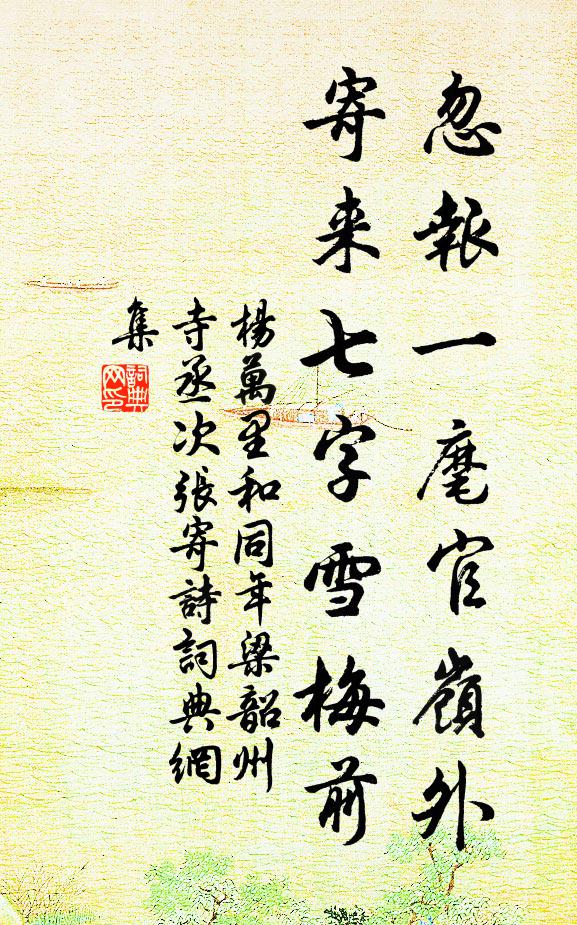 忽報一麾官嶺外
寄来七字雪梅前
楊萬里和同年梁韶州
寺丞次張寄詩詞典網
集
詞典
网印